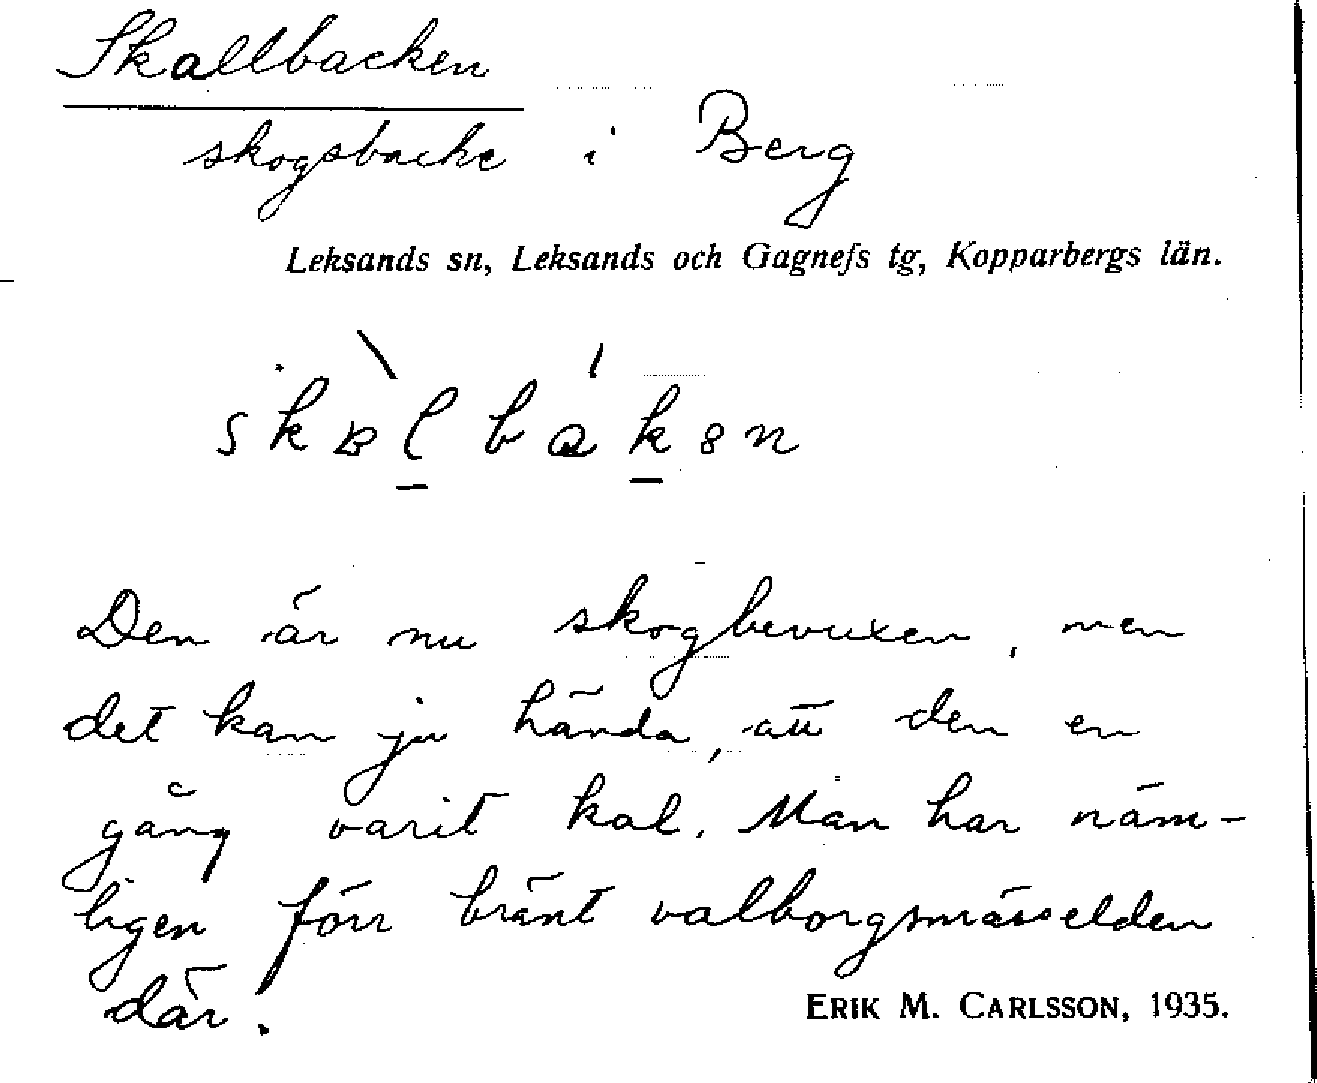 Skallbacken
skogsbacke i Berg
Leksands sn, Leksands och Gagnefs tg, Kopparbergs län.
Den är nu skogbevuxen, men
det kan ju hända, att den en
gång varit kal. Man har näm-
ligen förr bränt valborgsmässelden
där.
ERIK M. CARLSSON, 1935.